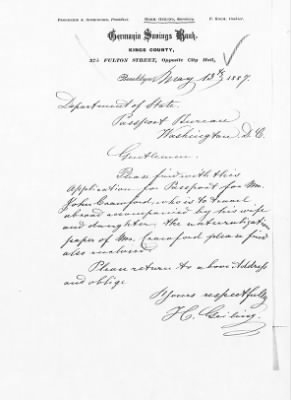 Frederick A. Schroeder, President. Henry Geiling, Secretary.
Germania Savings Bank,
KINGS COUNTY,
375 FULTON STREET, Opposite City Hall,
Brooklyn, May 13th 1887.
Department of State.
Passport Bureau
Washington D.C.
Gentlemen.
Please find with this
application for Passport for Mr.
John Crawford, who is to travel
abroad accompanied by his wife
and daughter. The naturalization
paper of Mr. Crawford please find
also enclosed.
Please return to above Address
and oblige
Yours respectfully
H. Geiling.